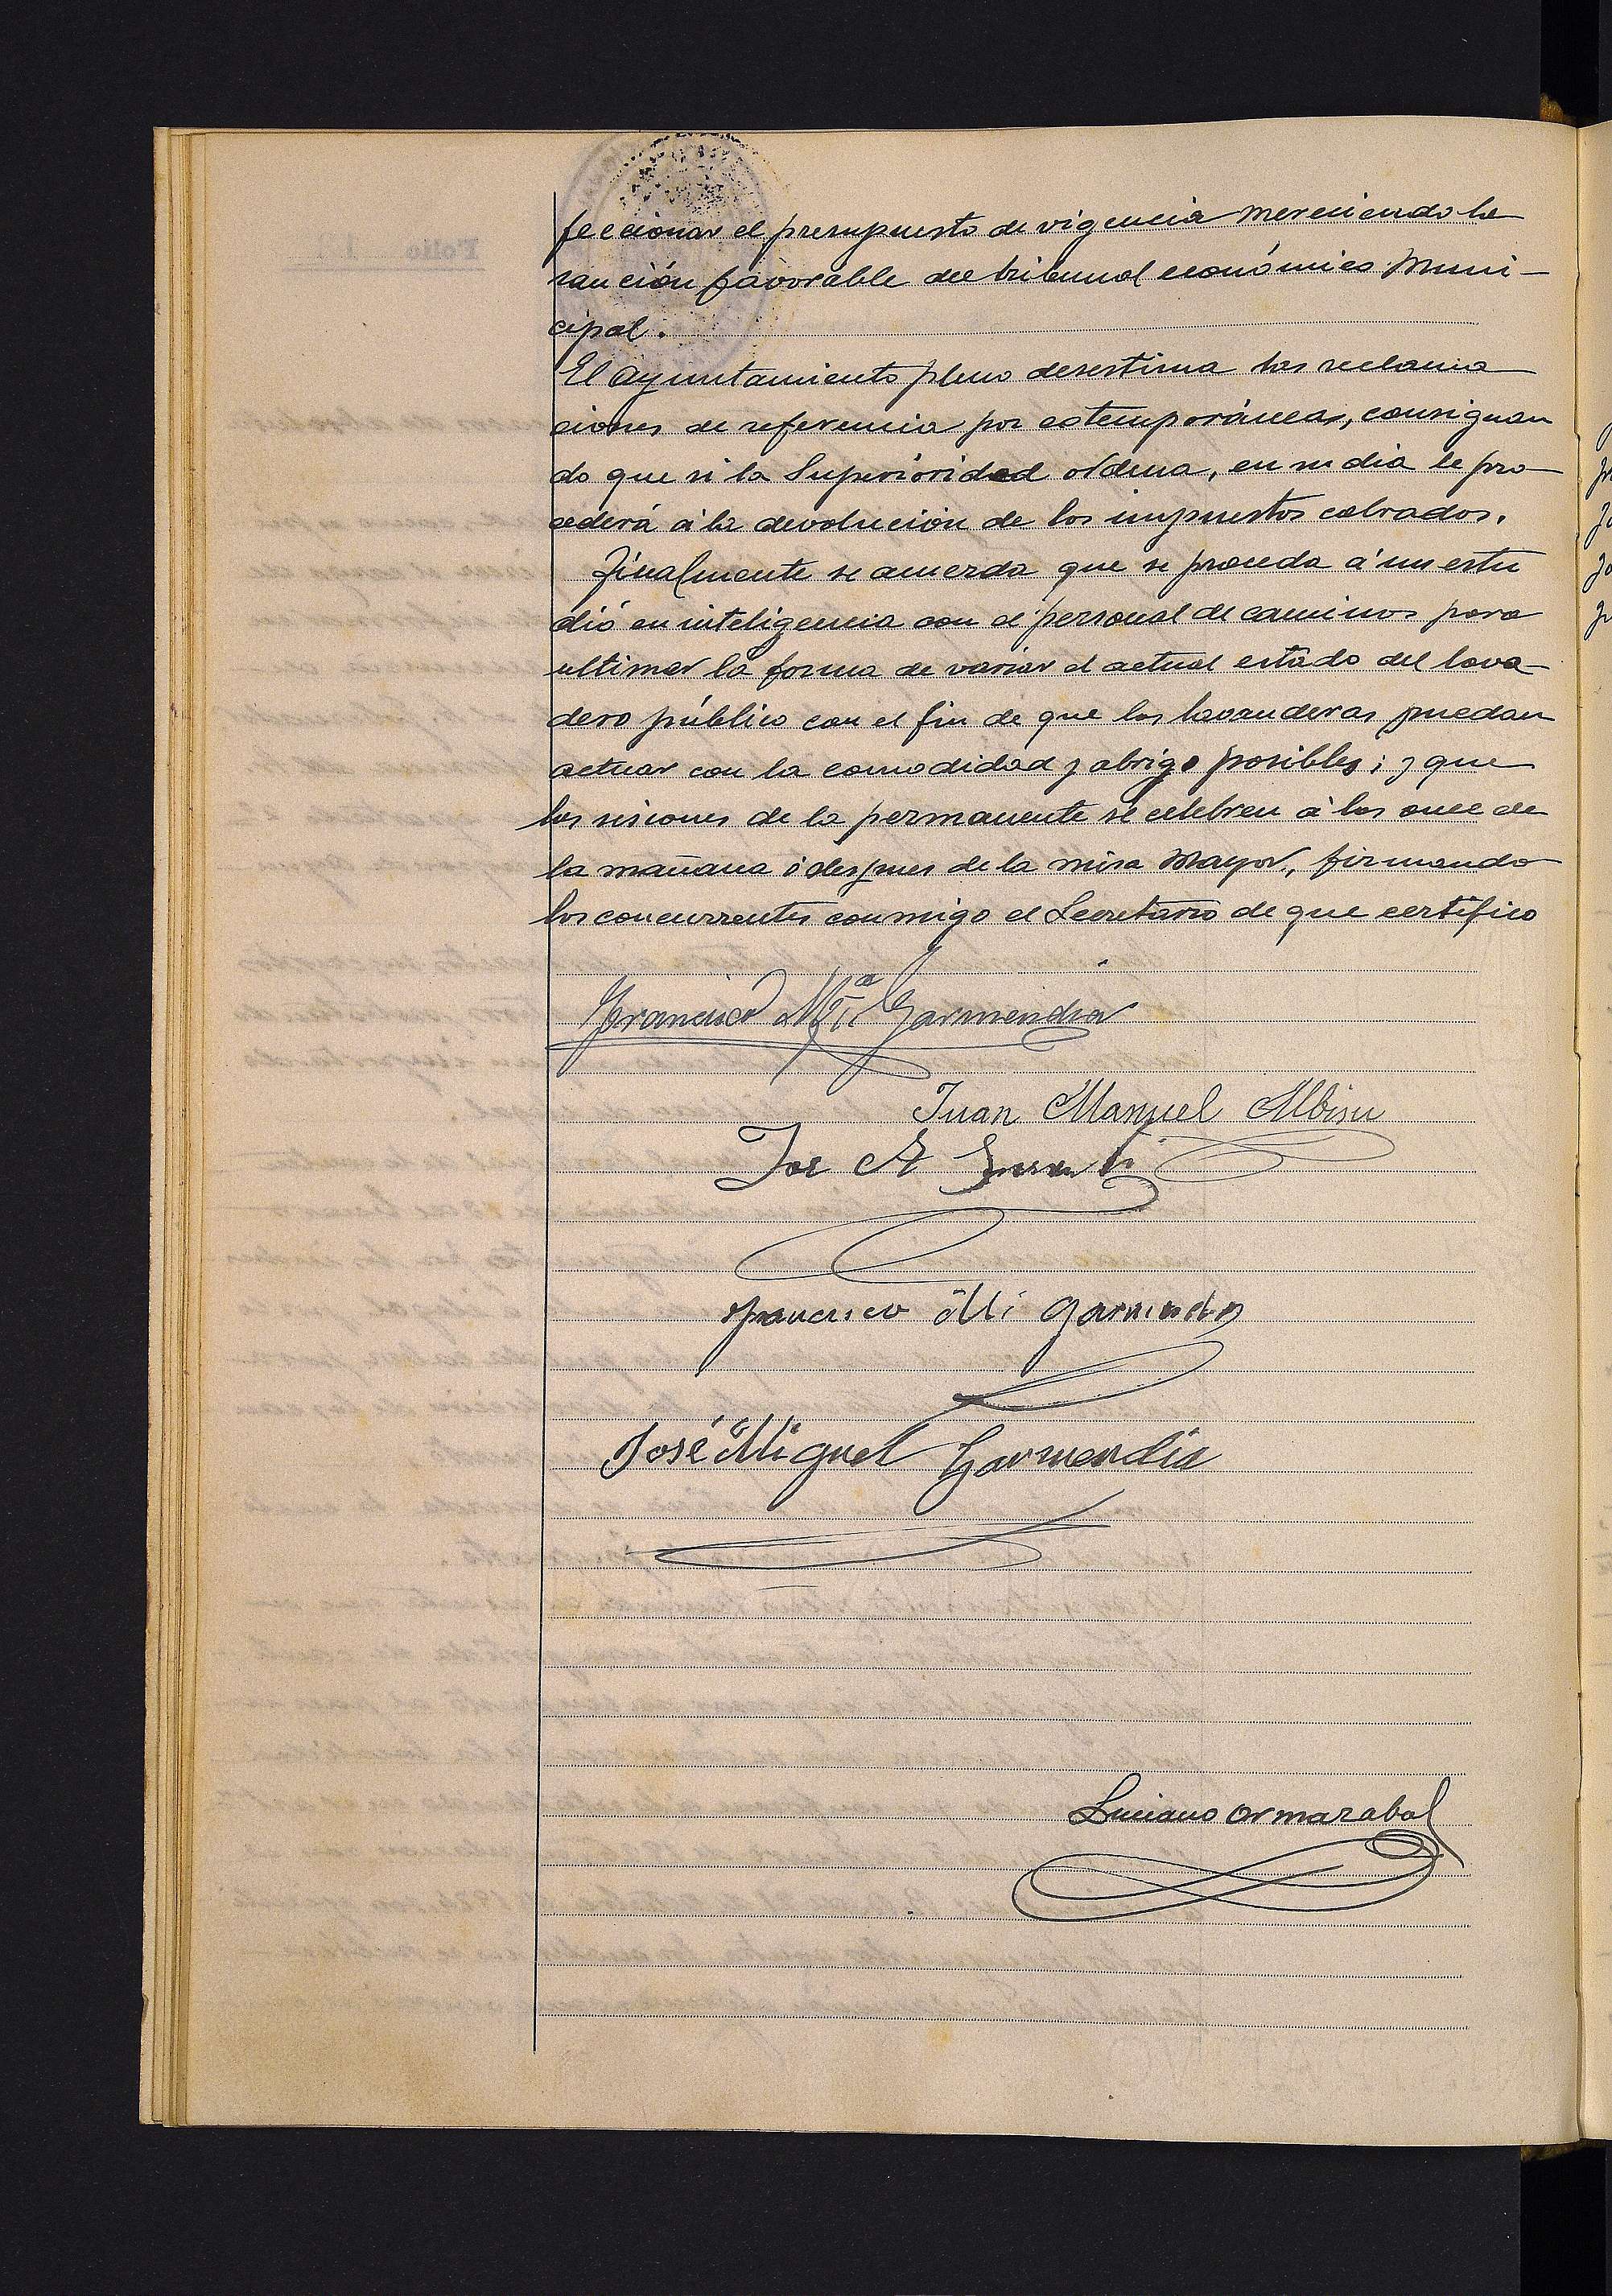 feccionar el presupuesto de vigencia mereciendo la
sanción favorable del tribunal económico Muni-
cipal.
El Ayuntamiento pleno desestima las reclama
ciones de referencia por estemporáneas, consignan
do que si la Superioridad ordena, en su dia se pro-
cederá á la devolución de los impuestos cobrados.
Finalmente se acuerda que se proceda á un estu
dió en inteligencia con el personal de caminos para
ultimar la forma de variar el actual estado del lava-
dero público con el fin de que las lavanderas puedan
actuar con la comodidad y abrigo posibles; y que
las sisiones de la permanente se celebren á las once de
la mañana ó despues de la misa Mayor, firmando
los concurrentes conmigo el Secretario de que certifico
Francisco Mª Garmendia
Juan Manuel Albisu
Jose A
Francisco Mi Garmendia
José Miguel Garmendia
Luciano Ormazabal